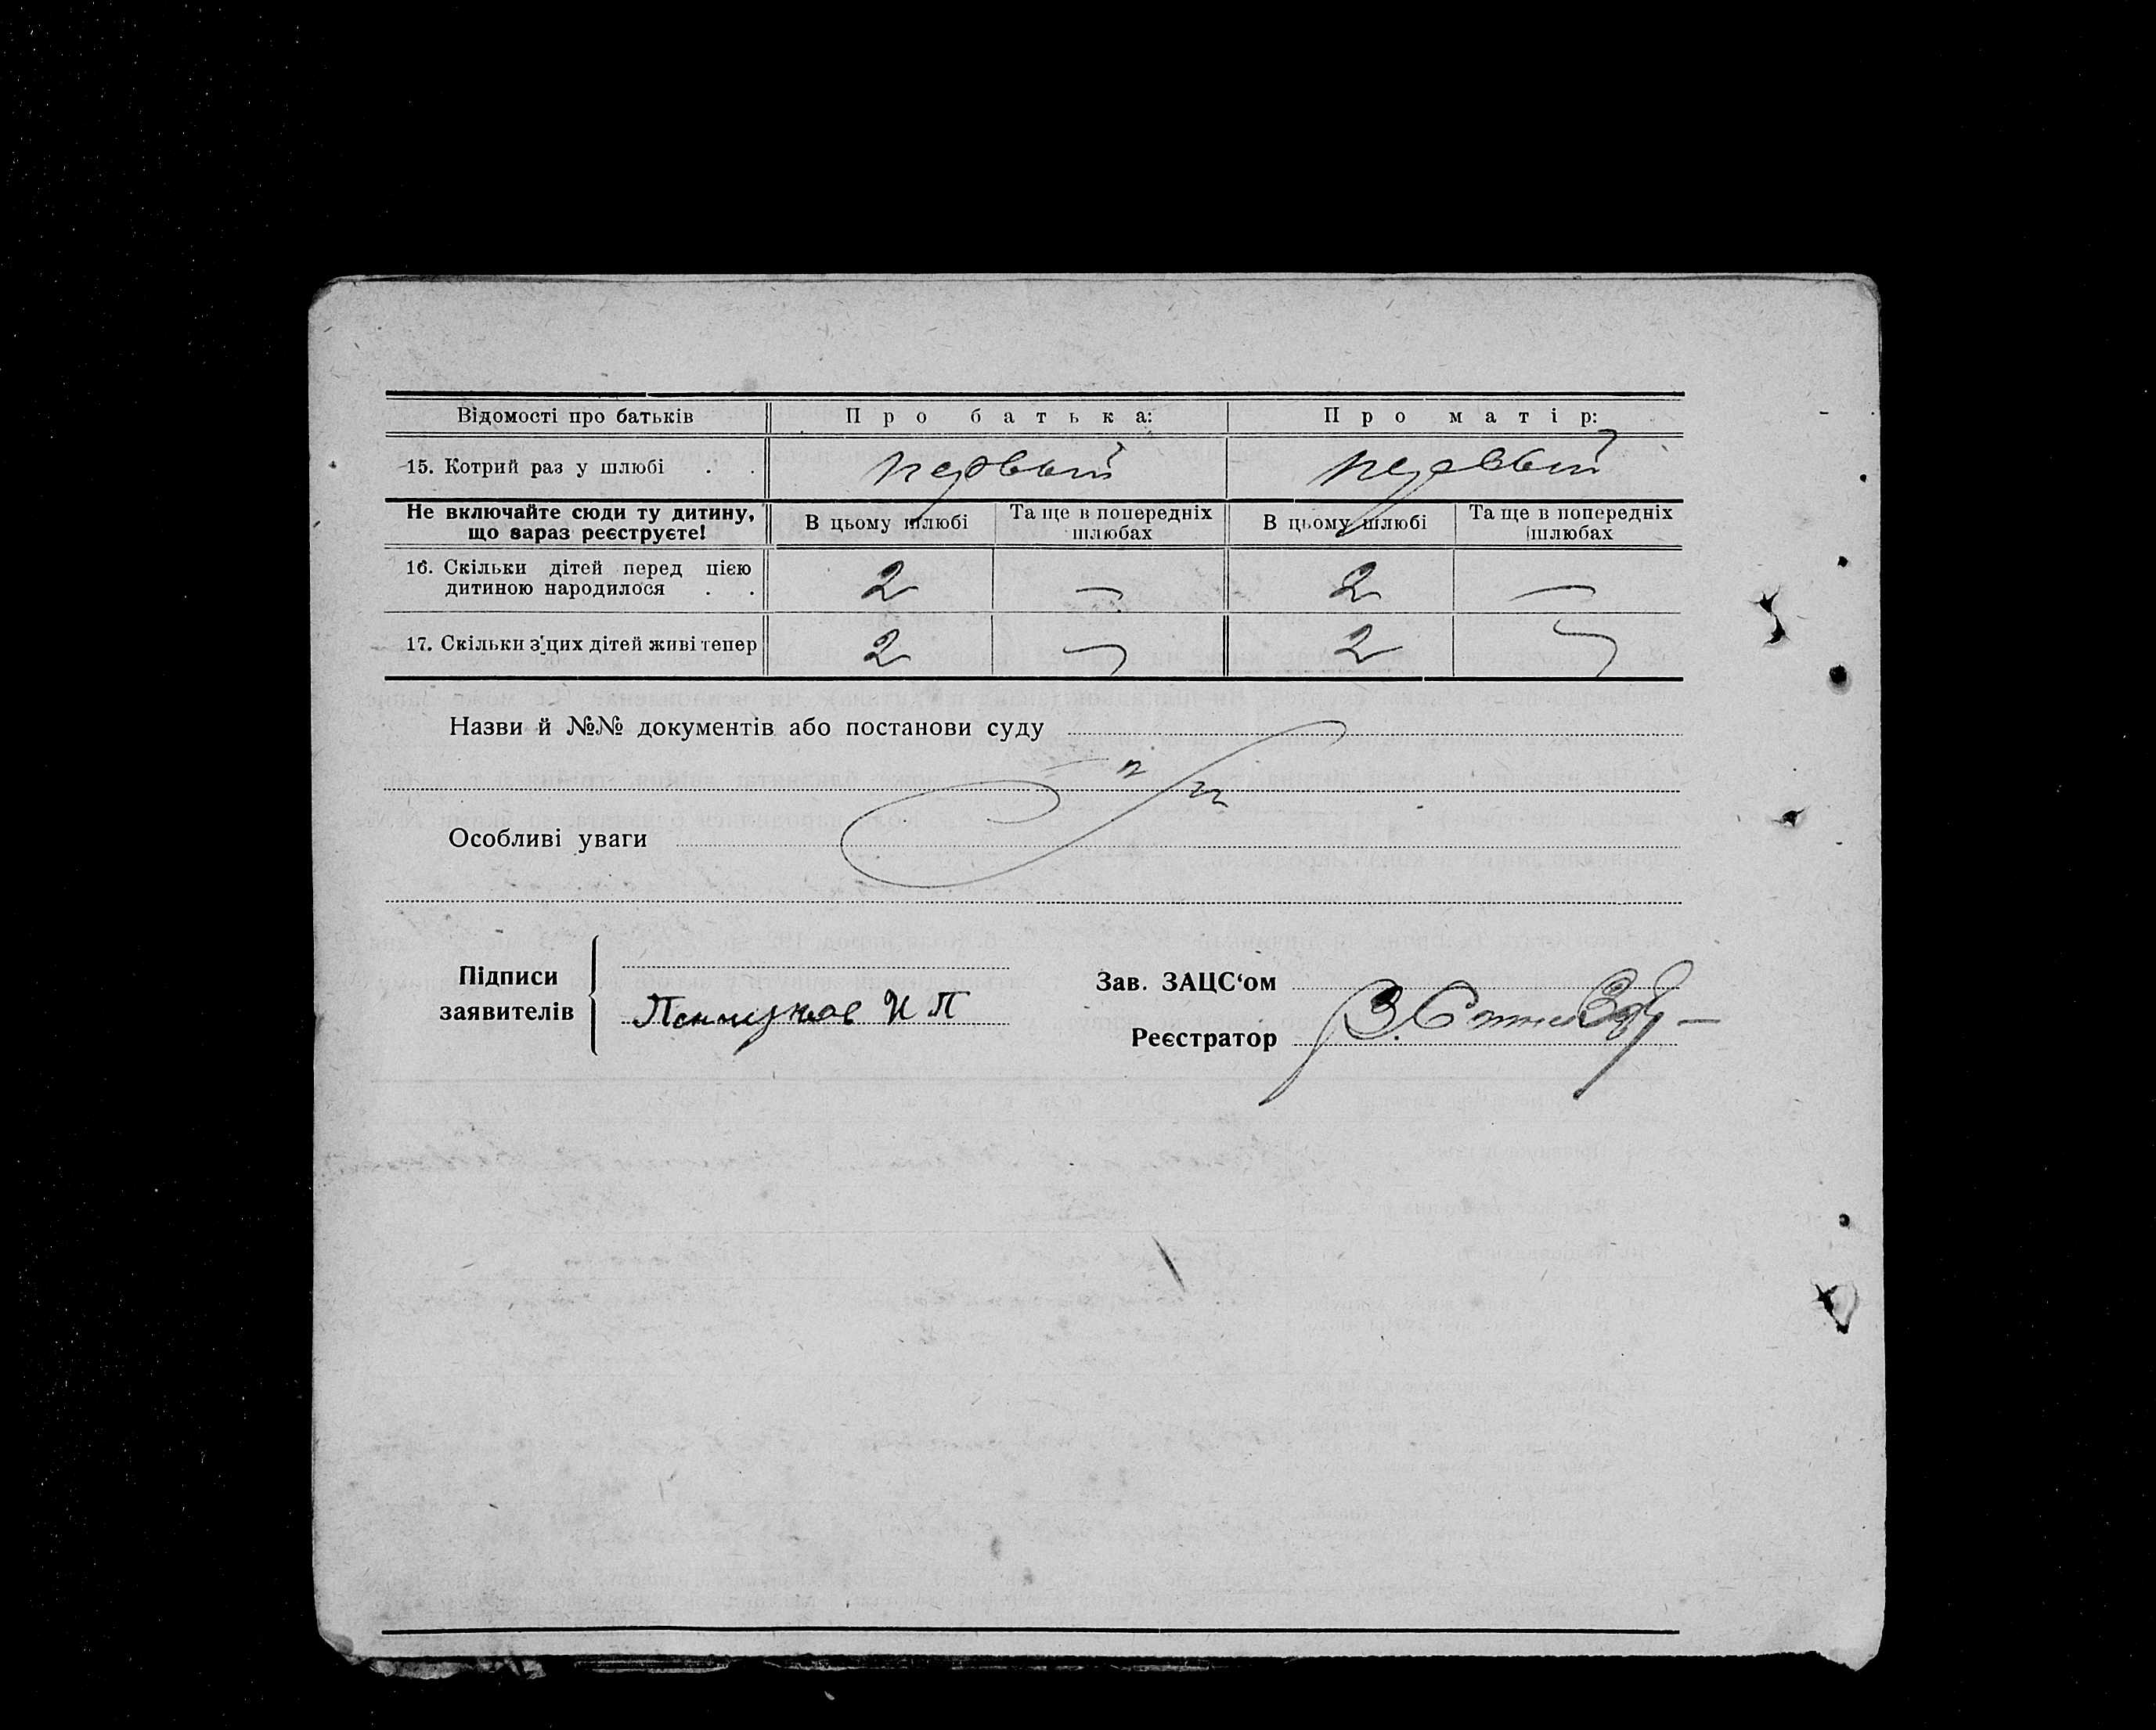 Відомості про батьків Про батька: Про матір:
15. Котрий раз у шлюбі . . первый первый
Не включайте сюди ту дитину, що зараз реєструєте! В цьому шлюбі Та ще в попередніх шлюбах В цьому шлюбі Та ще в попередніх шлюбах
16. Скільки дітей перед цією дитиною народилося . . 2 — 2 —
17. Скільки з цих дітей живі тепер 2 — 2 —
Назви й №№ документів або постанови суду
Особливі уваги
Підписи заявителів
И П
Зав. ЗАЦС‘ом
Реєстратор В.